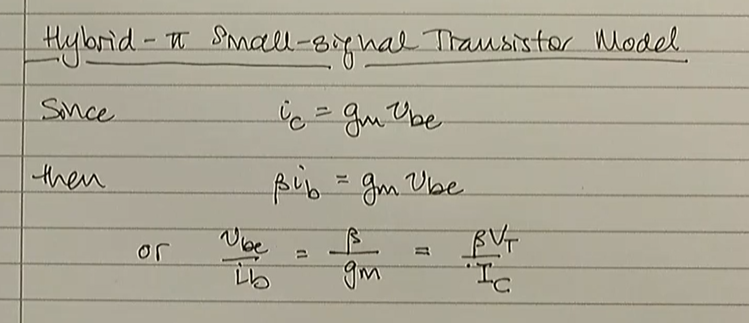 Hybrid-π Small-signal Transistor Model
Since i_c = g_m v_be
then βi_b = g_m v_be
or v_be/i_b = β/g_m = βV_T/I_C